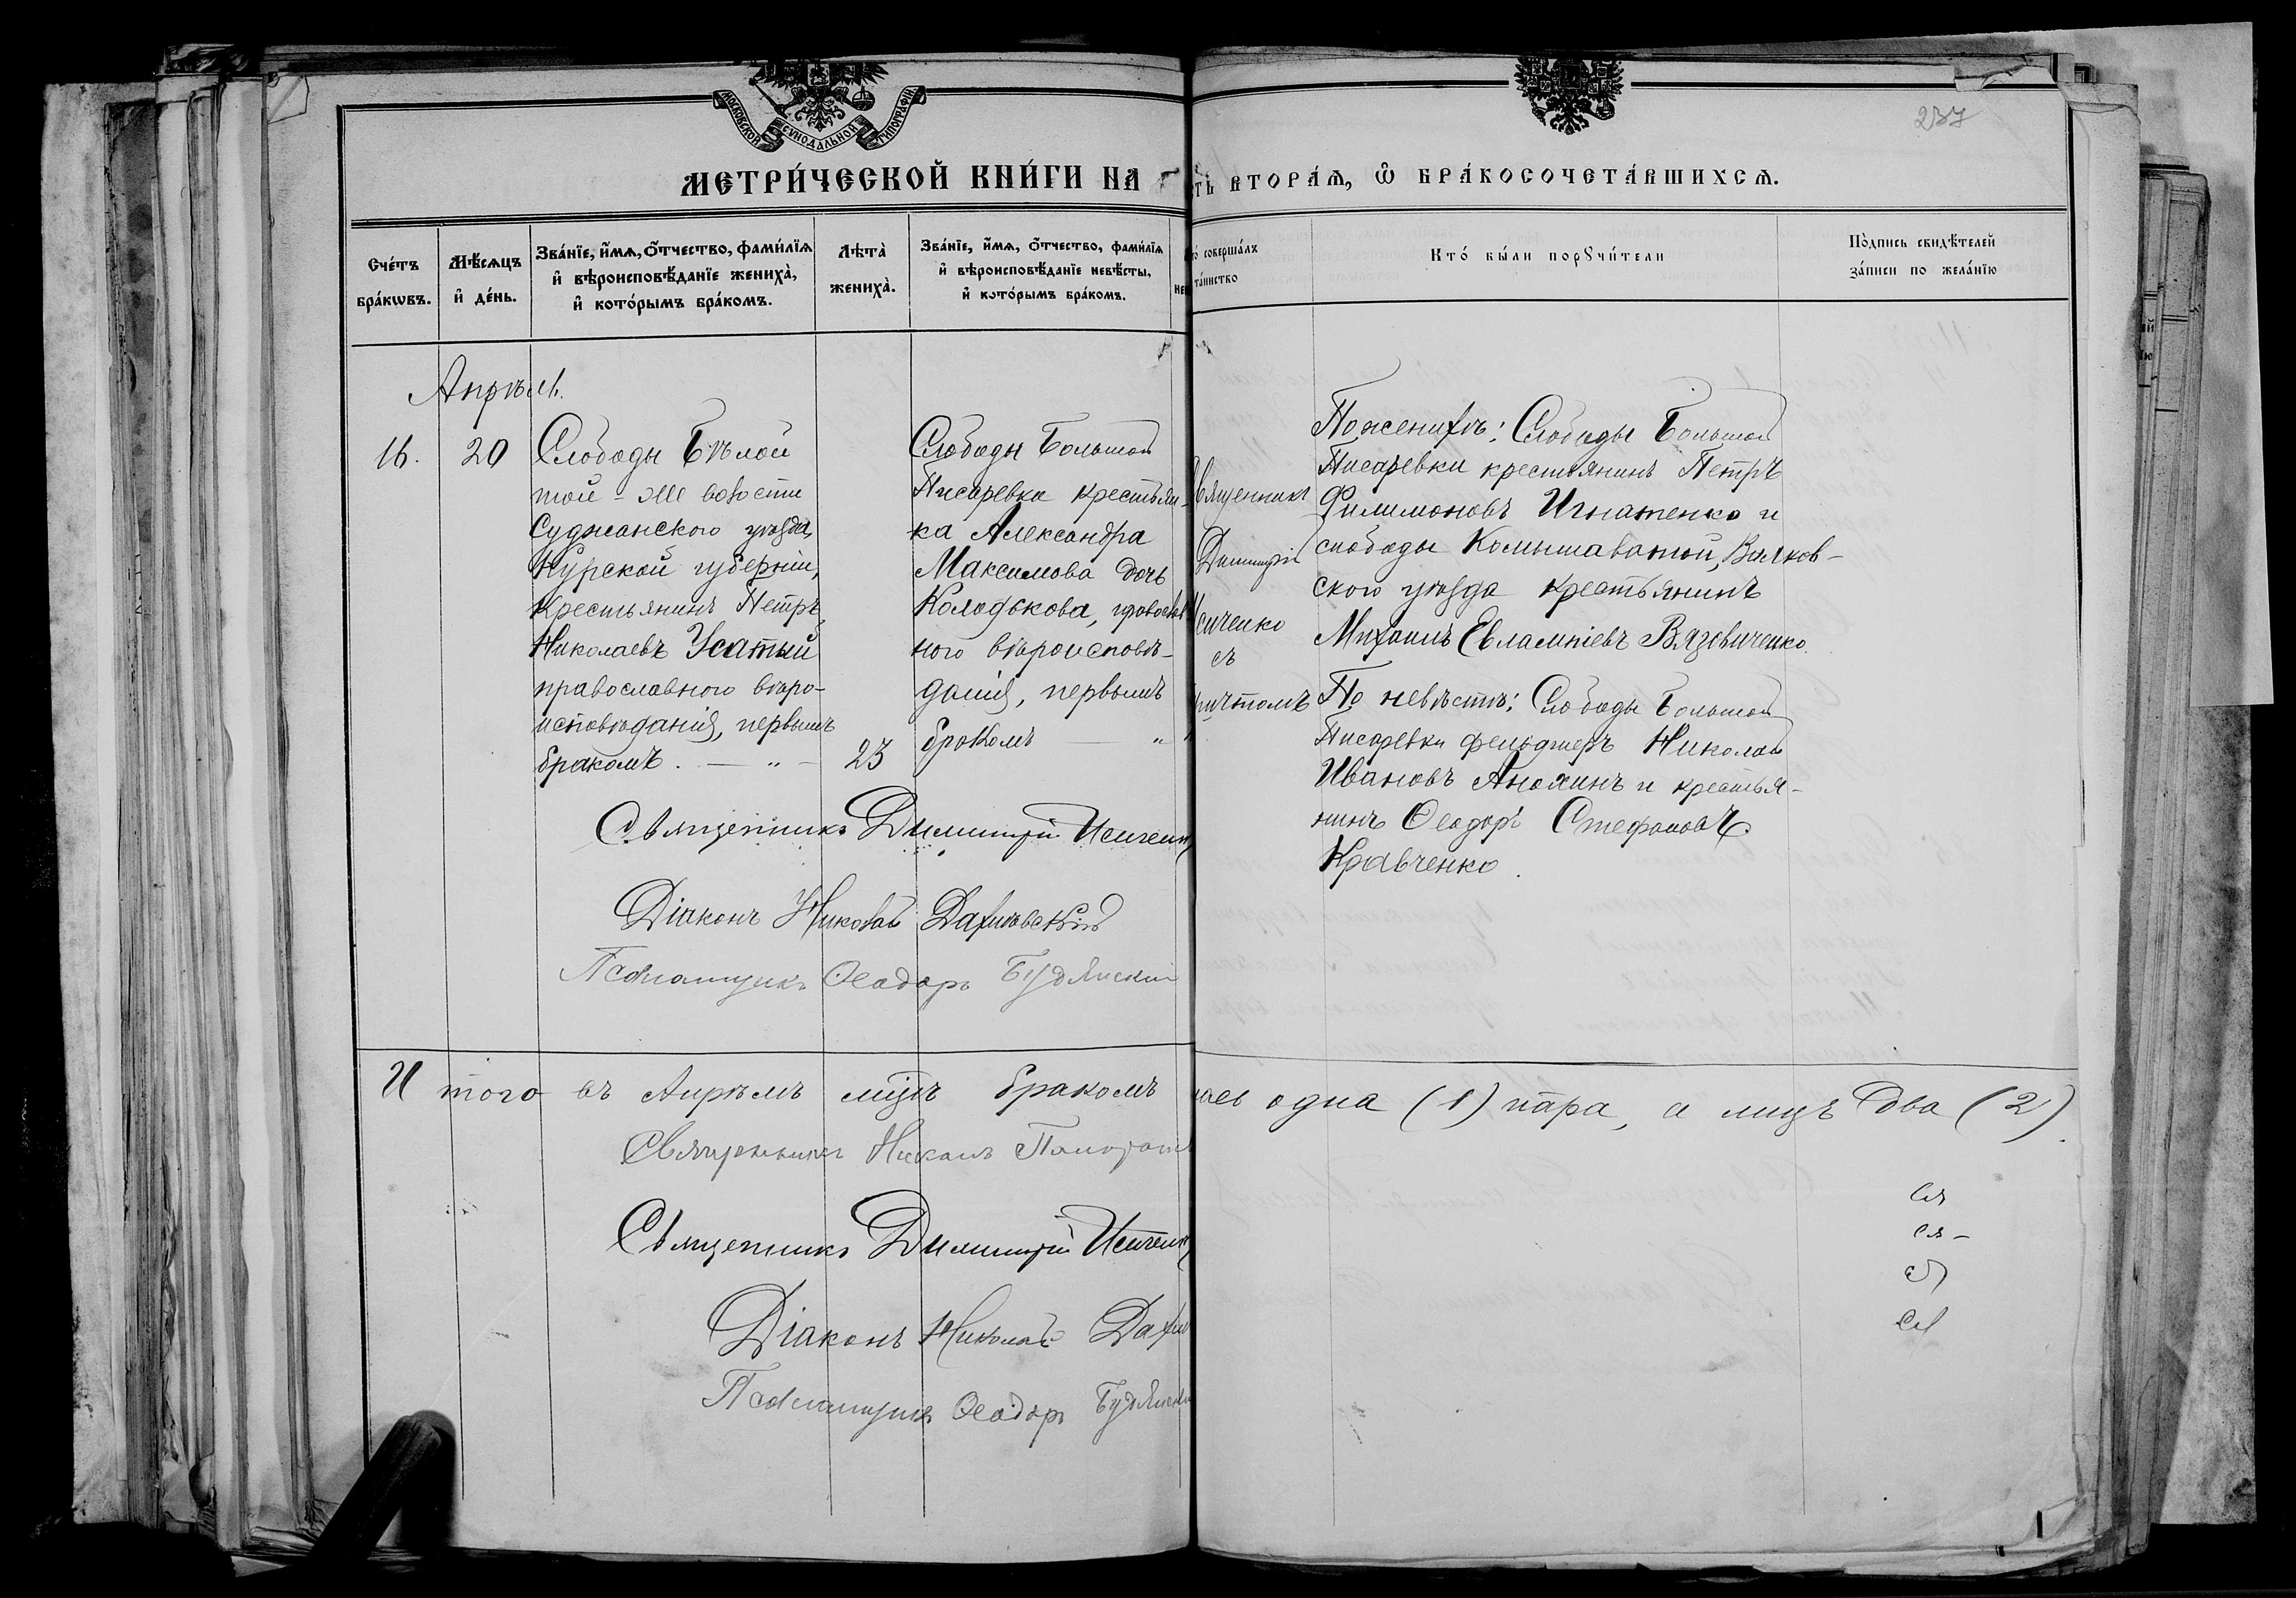 МОСКОВСКОЙ СѴНОДАЛЬНОЙ ТИПОГРАФІИ
237
МЕТРИ́ЧЕСКОЙ КНИ́ГИ НА
ТЬ ВТОРА́Ѧ, Ѿ БРА́КОСОЧЕТА́ВШИХСѦ.
Сче́тъ бра́кѡвъ.
Мѣ́сѧцъ и҆ де́нь.
Зва́нїе, и҆́мѧ, о҆́тчество, фами́лїѧ
и҆ вѣроисповѣ́данїе жениха̀,
и҆ кото́рымъ бра́комъ.
Лѣта̀ жениха̀.
Зва́нїе, и҆́мѧ, о҆́тчество, фами́лїѧ
и҆ вѣроисповѣ́данїе невѣ́сты,
и҆ кото́рымъ бра́комъ.
то́ соверша́лъ
та́инство
Кто́ бы́ли порꙋчи́тели
По́дпись свидѣ́телей
за́писи по жела́нїю
Апрѣль.
16.
20
Слободы Бѣлой
той-же волости
Суджанскаго уѣзда,
Курской губерніи,
крестьянинъ Петръ
Николаевъ Усатый
православнаго вѣро-
исповѣданія, первымъ
бракомъ. — „ —
23
Слободы Большой
Писаревки крестьян-
ка Александра
Максимова дочь
Колодькова, православ
ного вѣроисповѣ-
данія, первымъ
бракомъ — „
Священникъ
Димитрій
Исиченко
съ
причтомъ
По женихѣ: Слободы Большой
Писаревки крестьянинъ Петръ
Филимоновъ Игнатенко и
слободы Комышаватой, Валков-
скаго уѣзда крестьянинъ
Михаилъ Евлампіевъ Вязовиченко.
По невѣстѣ: Слободы Большой
Писаревки фельдшеръ Николай
Ивановъ Анохинъ и крестья-
нинъ Ѳеодоръ Стефановъ
Кравченко.
Священникъ Димитрій Исиченк
Діаконъ Николай Дахнѣвскій
Псаломщикъ Ѳеодоръ Будянскій
Итого въ Апрѣлѣ мцѣ бракомъ
лась одна (1) пара, а лицъ два (2).
Священникъ
Священникъ Димитрій Исиченк
Діаконъ Николай Дахн
Псаломщикъ Ѳеодоръ Будянскі